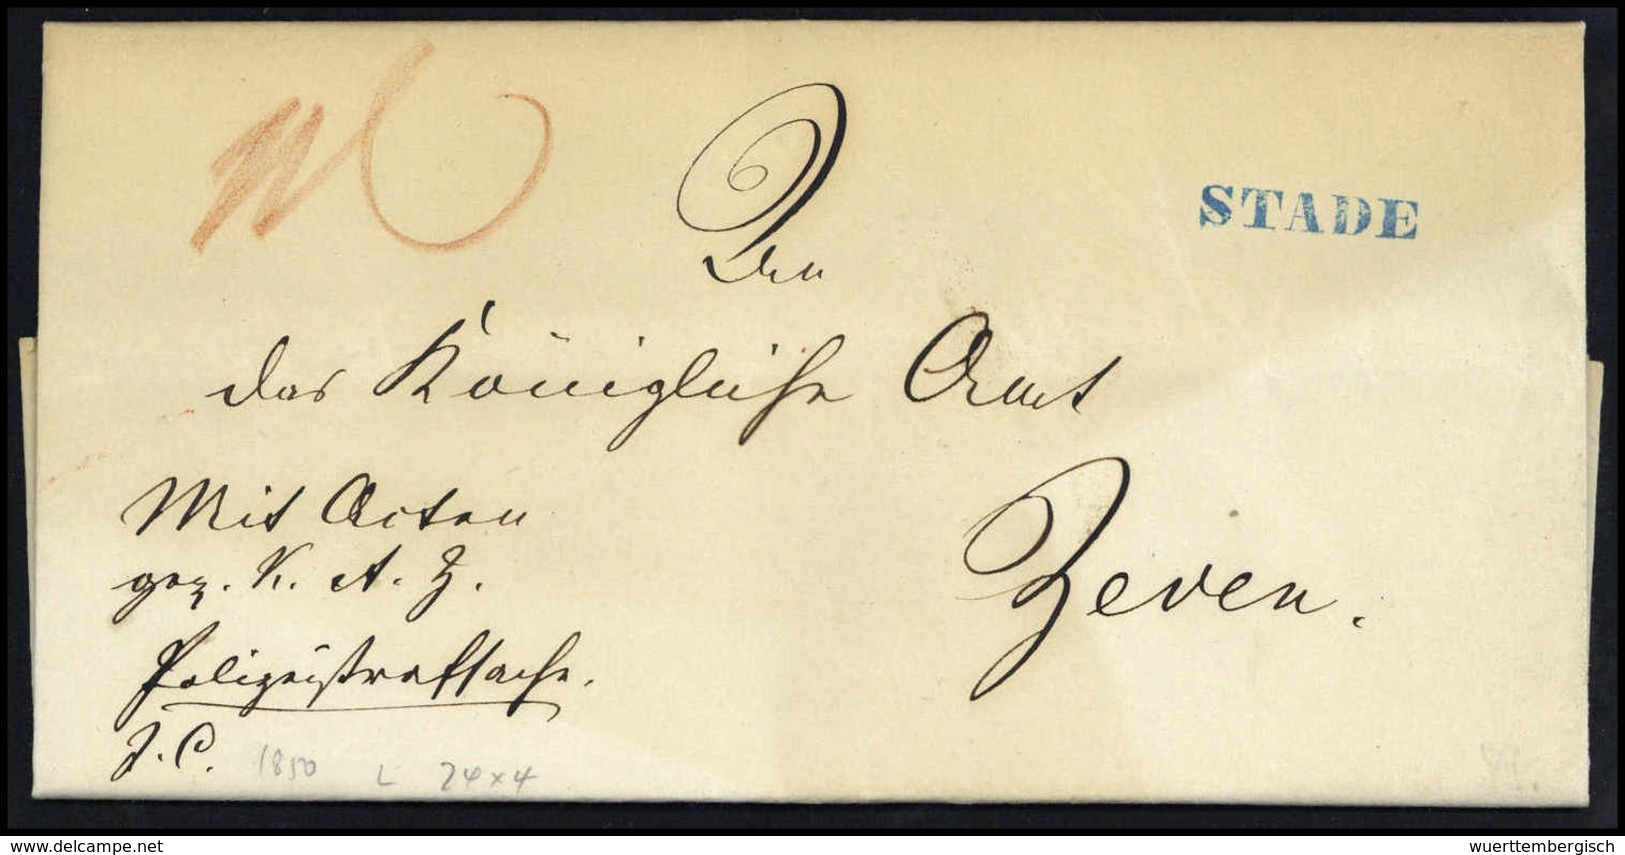 STADE
An
das Königliche Amt
Zeven.
Mit Acten
gez. K. A. Z.
Polizeistrafsache.
J. C.
1850 L 24 x 4
delcampe.net
wuerttembergisch